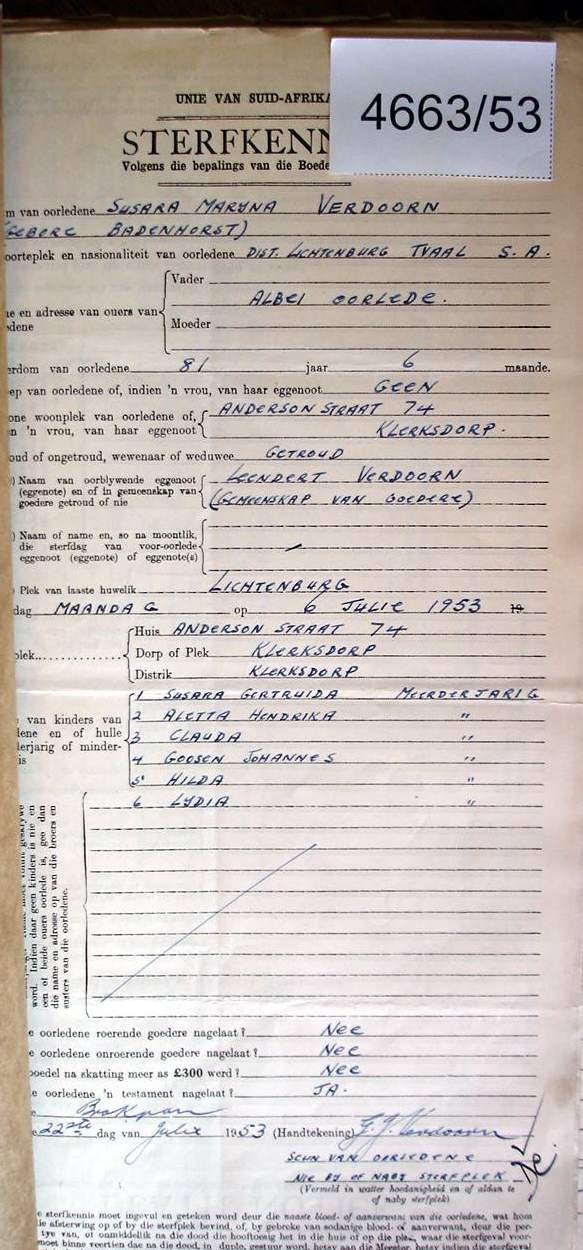 4663/53
UNIE VAN SUID-AFRIKA
STERFKENN
Volgens die bepalings van die Boede
m van oorledene SUSARA MARYNA VERDOORN
(GEBORE BADENHORST)
oorteplek en nasionaliteit van oorledene DIST. LICHTENBURG TVAAL S.A.
Vader
ALBEI OORLEDE.
e en adresse van ouers van
dene
Moeder
erdom van oorledene 81 jaar 6 maande.
ep van oorledene of, indien 'n vrou, van haar eggenoot GEEN
one woonplek van oorledene of, ANDERSON STRAAT 74
n 'n vrou, van haar eggenoot KLERKSDORP.
oud of ongetroud, wewenaar of weduwee GETROUD
) Naam van oorblywende eggenoot LEENDERT VERDOORN
(eggenote) en of in gemeenskap van (GEMEENSKAP VAN GOEDERE)
goedere getroud of nie
) Naam of name en, so na moontlik,
die sterfdag van voor-oorlede
eggenoot (eggenote) of eggenote(s)
Plek van laaste huwelik LICHTENBURG
dag MAANDAG op 6 JULIE 1953 19
Huis ANDERSON STRAAT 74
plek Dorp of Plek KLERKSDORP
Distrik KLERKSDORP
1 SUSARA GERTRUIDA MEERDERJARIG
van kinders van 2 ALETTA HENDRIKA "
lene en of hulle 3 CLAUDA "
lerjarig of minder- 4 GOOSEN JOHANNES "
is 5 HILDA "
6 LYDIA "
word. Indien daar geen kinders is nie en
een of beide ouers oorlede is, gee dan
die name en adresse op van die broers en
susters van die oorledene.
e oorledene roerende goedere nagelaat? NEE
e oorledene onroerende goedere nagelaat? NEE
boedel na skatting meer as £300 werd? NEE
e oorledene 'n testament nagelaat? JA.
e Brakpan
e 22ste dag van Julie 1953 (Handtekening) G. J. Verdoorn
SEUN VAN OORLEDENE
NIE BY OF NABY STERFPLEK
(Vermeld in watter hoedanigheid en of aldan te
of naby sterfplek)
e sterfkennis moet ingevul en geteken word deur die naaste bloed- of aanverwant van die oorledene, wat
die afsterwing op of by die sterfplek bevind, of, by gebreke van sodanige bloed- of aanverwant, deur die
tye van, of onmiddellik na die dood die hooftoesig het in die huis of op die plek, waar die sterfgeval
moet binne veertien dae na die dood, in duplo, gestuur word, hetsy aan die Meester, hetsy indien